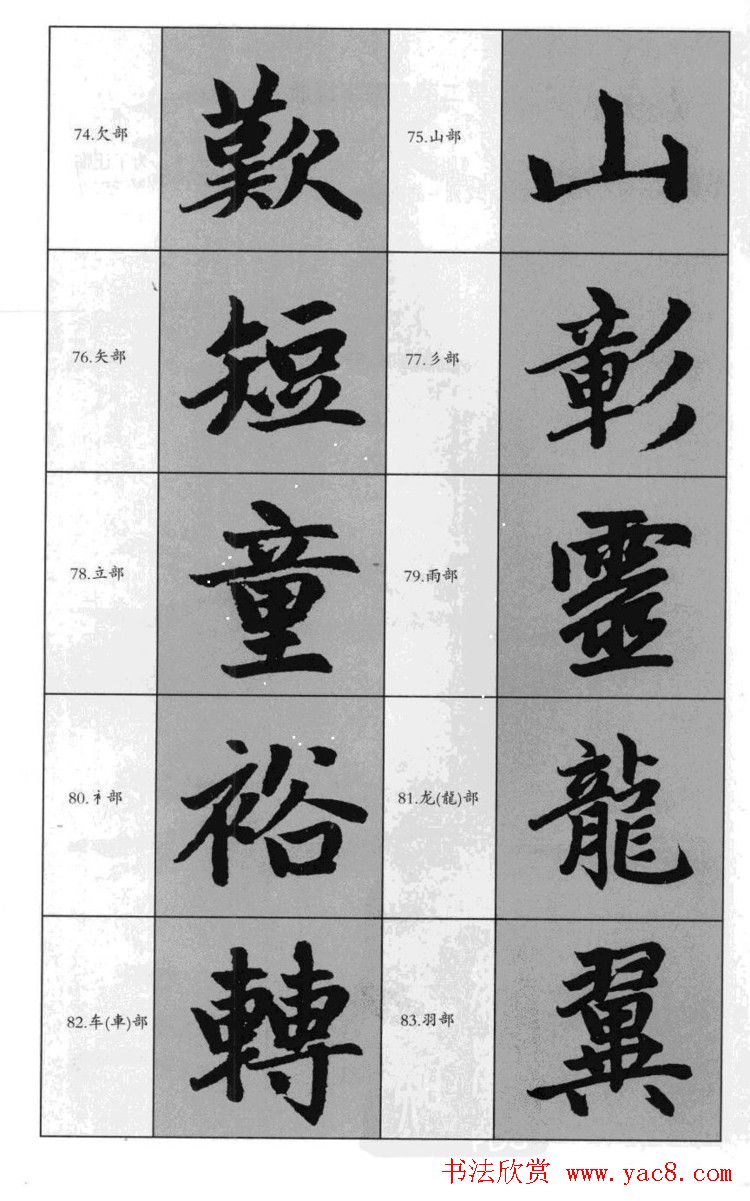 74.欠部 歎 75.山部 山
76.矢部 短 77.彡部 彰
78.立部 童 79.雨部 靈
80.衤部 裕 81.龙(龍)部 龍
82.车(車)部 轉 83.羽部 翼
书法欣赏 www.yac8.com